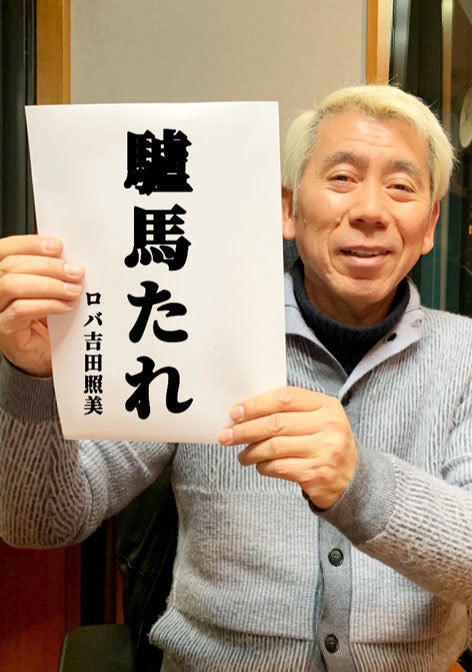 驢馬たれ
ロバ吉田照美